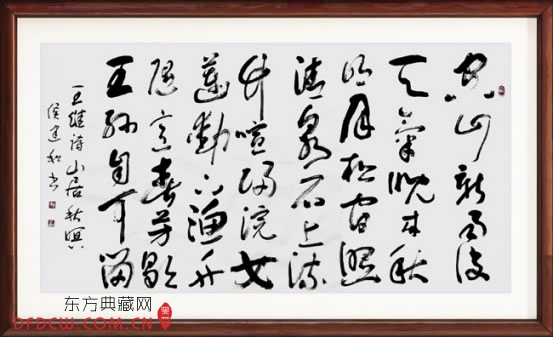 空山新雨後
天氣晚来秋
明月松间照
清泉石上流
竹喧归浣女
莲動下渔舟
随意春芳歇
王孙自可留
王维诗山居秋暝
侯建书
东方典藏网
DFDCW.COM.CN